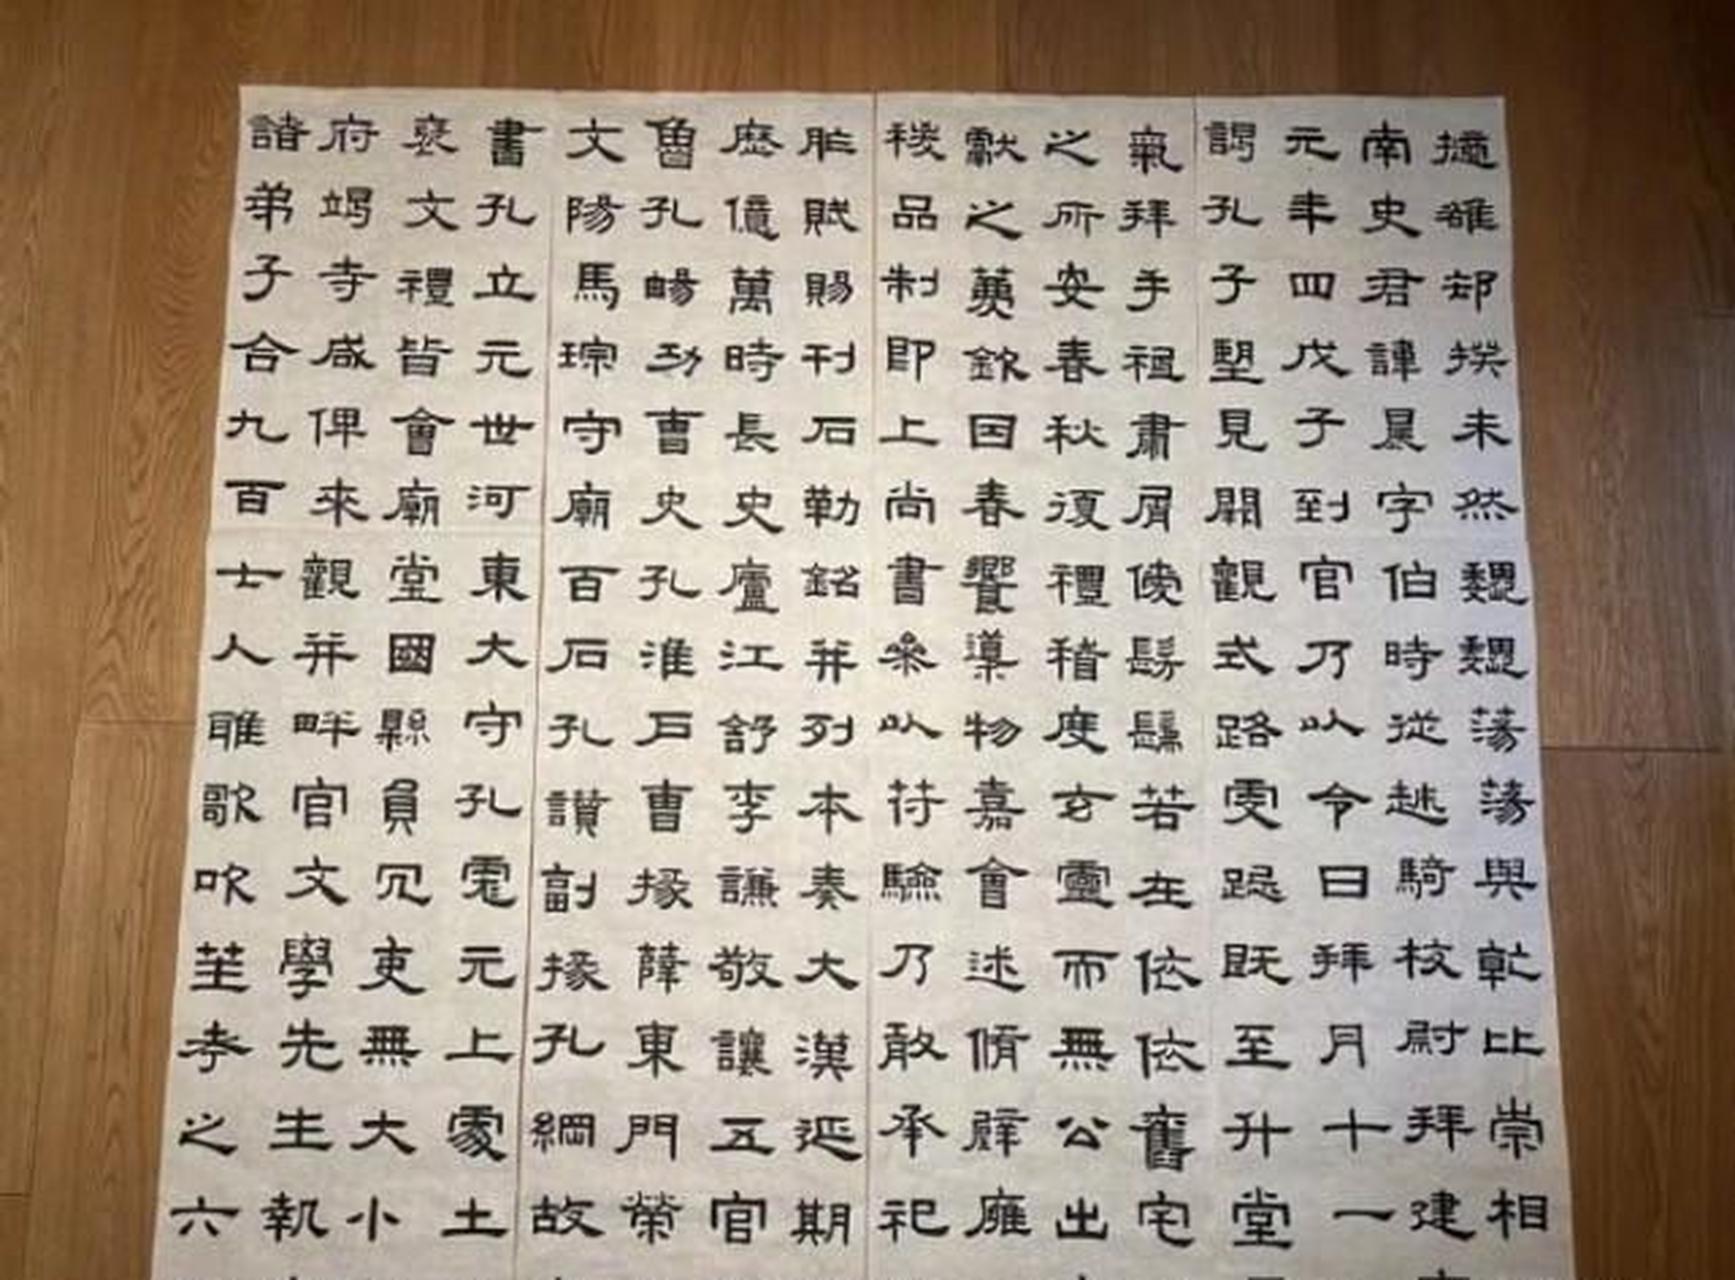 擿雒却揆未然魏魏蕩蕩與乾比崇相
南史君諱晨字伯時從越騎校尉拜建
元年四戊子到官乃以令日拜月十一
謁孔子望見闕觀式路虔跽既至升堂
氣拜手祗肅屑僾髣髴若在依依舊宅
之所安春秋復禮稽度玄靈而無公出
獻之薦欽因春饗導物嘉會述脩辟廱
稷品制即上尚書參以符驗乃敢承祀
胙賦賜刊石勒銘并列本奏大漢延期
歷億萬時長史廬江舒李謙敬讓五官
魯孔暢功曹史孔淮戶曹掾薛東門榮
文陽馬琮守廟百石孔讚副掾孔綱故
書孔立元世河東大守孔彪元上處土
褒文禮皆會廟堂國縣員冗吏無大小
府竭寺咸俾來觀并畔官文學先生執
諸弟子合九百七人雅歌吹笙考之六